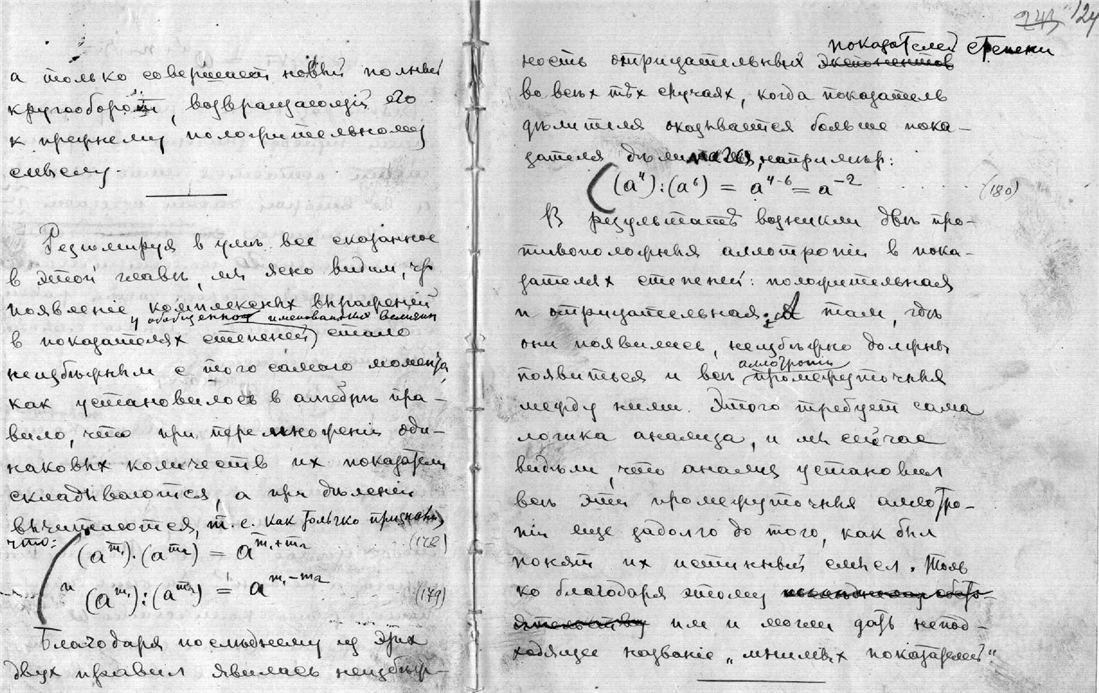 а только совершает новый полный
кругооборот, возвращающій его
к прежнему положительному
смыслу
Резюмируя в умѣ все сказанное
в этой главѣ, мы ясно видим, что
появление комплексных выражений
и обобщенно именованных величин
в показателях степеней) стало
неизбѣжным с того самого момента,
как установилось в алгебрѣ пра-
вило, что при перемножении оди-
наковых количеств их показатели
складываются, а при дѣлении
вычитаются, т.е. как только признать,
что:
(a^m₁)·(a^m₂) = a^m₁+m₂ (178)
и (a^m₁):(a^m₂) = a^m₁-m₂ (179)
Благодаря послѣднему из этих
двух правил явилась неизбѣж-
243 124
показателей степени
ность отрицательных экспонентов
во всѣх тѣх случаях, когда показатель
дѣлителя оказывается больше пока-
зателя дѣлимаго, напримѣр:
(a⁴):(a⁶) = a⁴⁻⁶ = a⁻² . . . . . (180)
В результатѣ возникли двѣ про-
тивоположныя аллотропіи в пока-
зателях степеней: положительная
и отрицательная. А там, гдѣ
они появились, неизбѣжно должны
аллотропіи
появиться и всѣ промежуточныя
между ними. Этого требует сама
логика анализа, и мы сейчас
видѣли, что анализ установил
всѣ эти промежуточныя аллотро-
піи еще задолго до того, как был
понят их истинный смысл. Толь
ко благодаря этому
им и могли дать непод-
ходящее название „мнимых показателей"